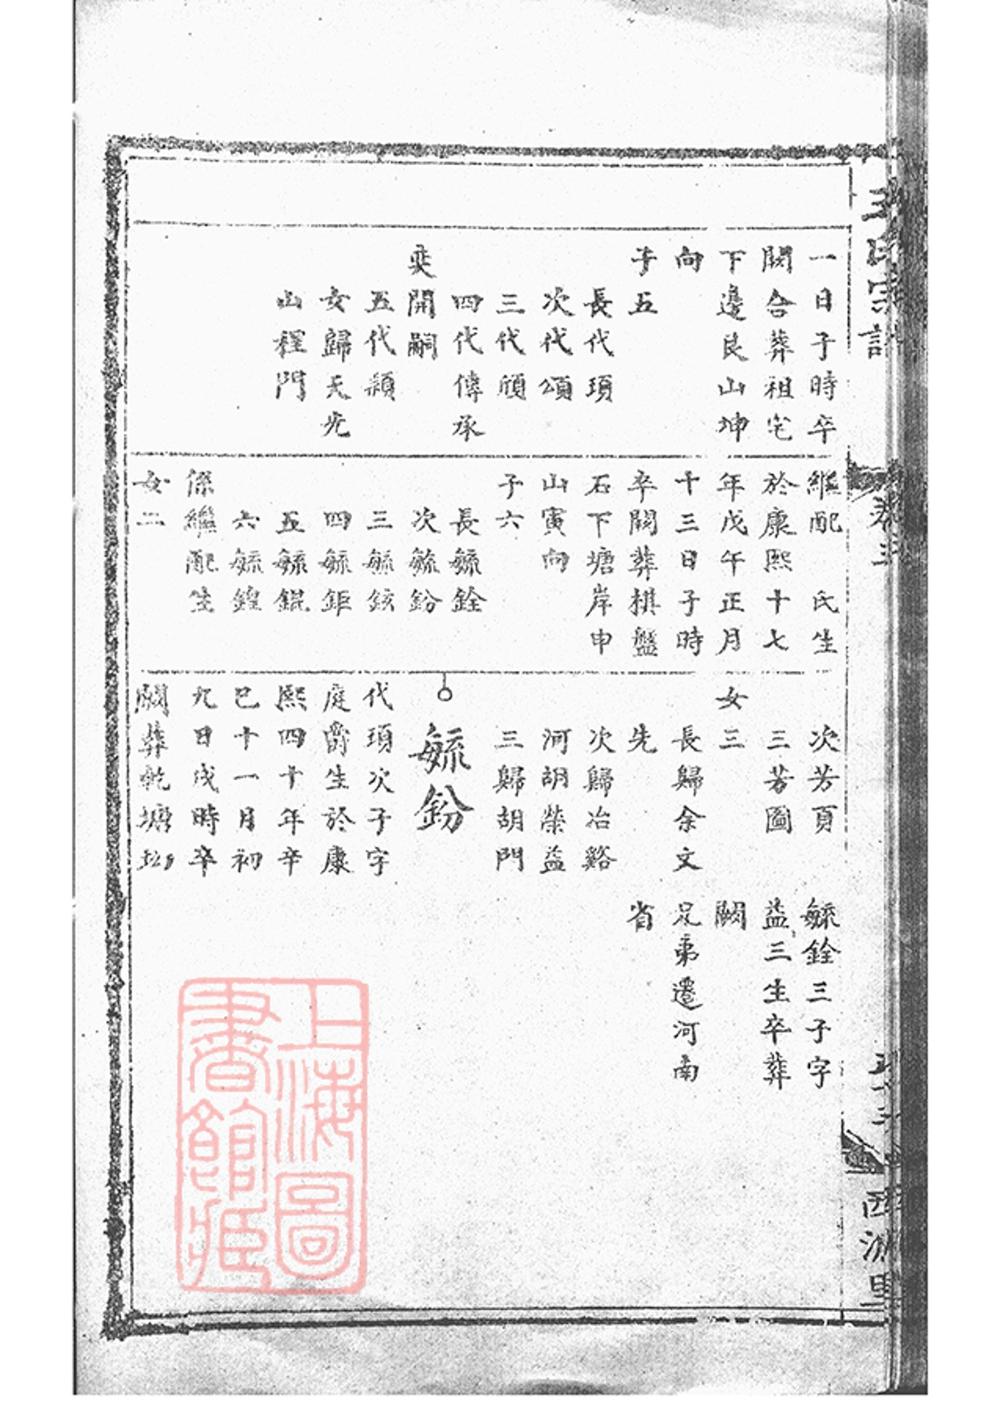 一日子時卒
闕合葬祖宅
下邊艮山坤
向
子五
長代項
次代頌
三代頎
四代傳承
奕開嗣
五代穎
女歸天光
山程門
繼配 氏生
於康熙十七
年戊午正月
十三日子時
卒闕葬棋盤
石下塘岸申
山寅向
子六
長毓銓
次毓鈖
三毓鉉
四毓鉅
五毓錕
六毓鍠
係繼配生
女二
次芳頁
三芳圖
女三
長歸余文
先
次歸冶谿
河胡榮益
三歸胡門
毓鈖
代項次子字
庭爵生於康
熙四十年辛
巳十一月初
九日戌時卒
闕葬乾塘坳
毓銓三子字
益三生卒葬
闕
兄弟遷河南
省
卷三
西源里
上海圖
書館藏